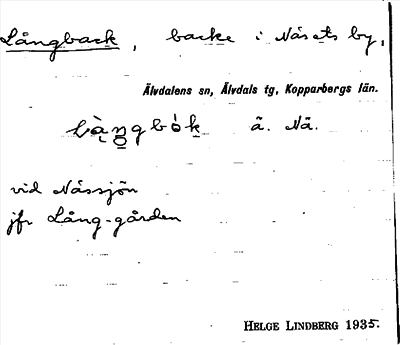 Långback, backe i Näsets by,
Älvdalens sn, Älvdals tg, Kopparbergs län.
ä. Nä.
vid Nässjön
jfr Lång-gården
HELGE LINDBERG 1935.